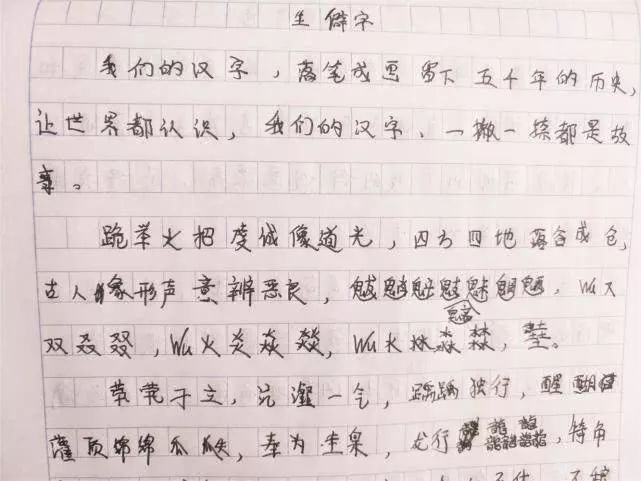 生僻字
我们的汉字，落笔成画留下五千年的历史，
让世界都认识，我们的汉字、一撇一捺都是故
事。
跪举火把虔诚像道光，四方田地落谷成仓，
古人象形声意辨恶良，魃魈魁鬾魅魍魉，Wu又
双叒叕，Wu火炎焱燚，Wu水沝淼㵘，㙓。
茕茕孑立，沆瀣一气，踽踽独行，醍醐
灌顶绵绵瓜瓞，奉为圭臬，龙行龘龘，犄角